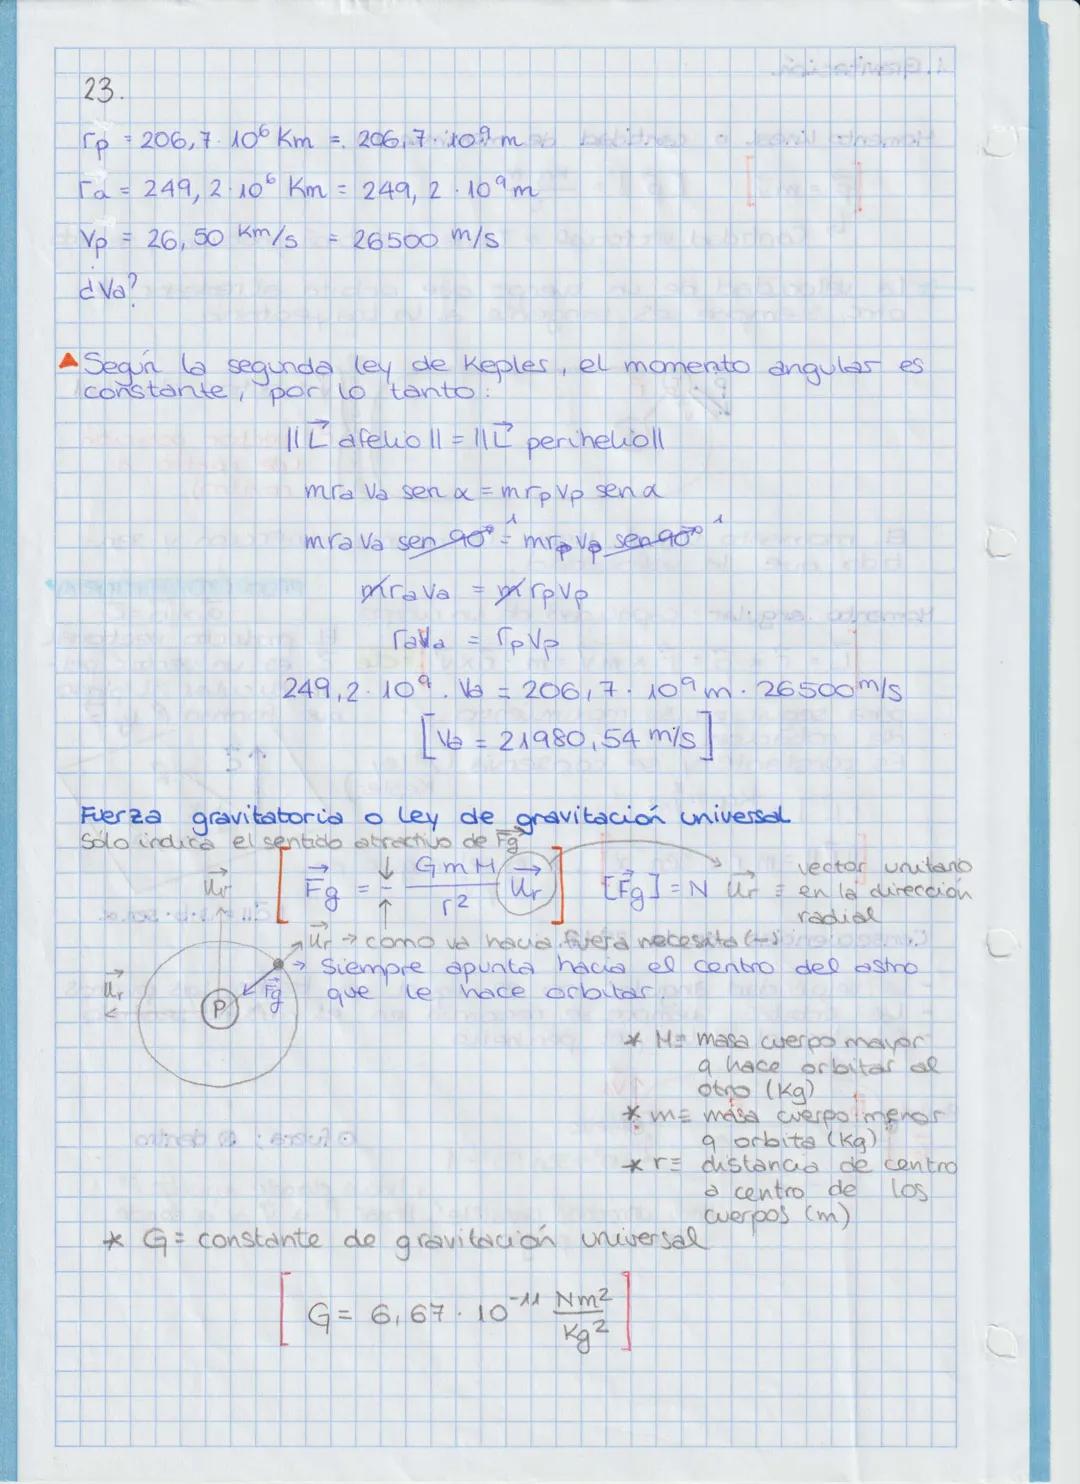 23.
rp = 206,7·10⁶ Km = 206,7·10⁹ m
ra = 249,2·10⁶ Km = 249,2·10⁹ m
Vp = 26,50 Km/s = 26500 m/s
¿Va?
Según la segunda ley de Kepler, el momento angular es
constante, por lo tanto:
||L⃗ afelio|| = ||L⃗ perihelio||
m ra Va sen α = m rp Vp sen α
m ra Va sen 90º ¹ = m rp Vp sen 90º ¹
m ra Va = m rp Vp
ra Va = rp Vp
249,2·10⁹ · Va = 206,7·10⁹ m · 26500 m/s
[Va = 21980,54 m/s]
Fuerza gravitatoria o ley de gravitación universal
Sólo indica el sentido atractivo de F⃗g
[F⃗g = - GmM/r² u⃗r] [F⃗g] = N u⃗r ≡ vector unitario
en la dirección
radial
u⃗r
u⃗r → como va hacia fuera necesita (-)
→ Siempre apunta hacia el centro del astro
que le hace orbitar.
u⃗r
F⃗g
P
* M ≡ masa cuerpo mayor
q hace orbitar al
otro (Kg)
* m ≡ masa cuerpo menor
q orbita (Kg)
* r ≡ distancia de centro
a centro de los
cuerpos (m)
* G = constante de gravitación universal
[G = 6,67·10⁻¹¹ Nm²/Kg²]